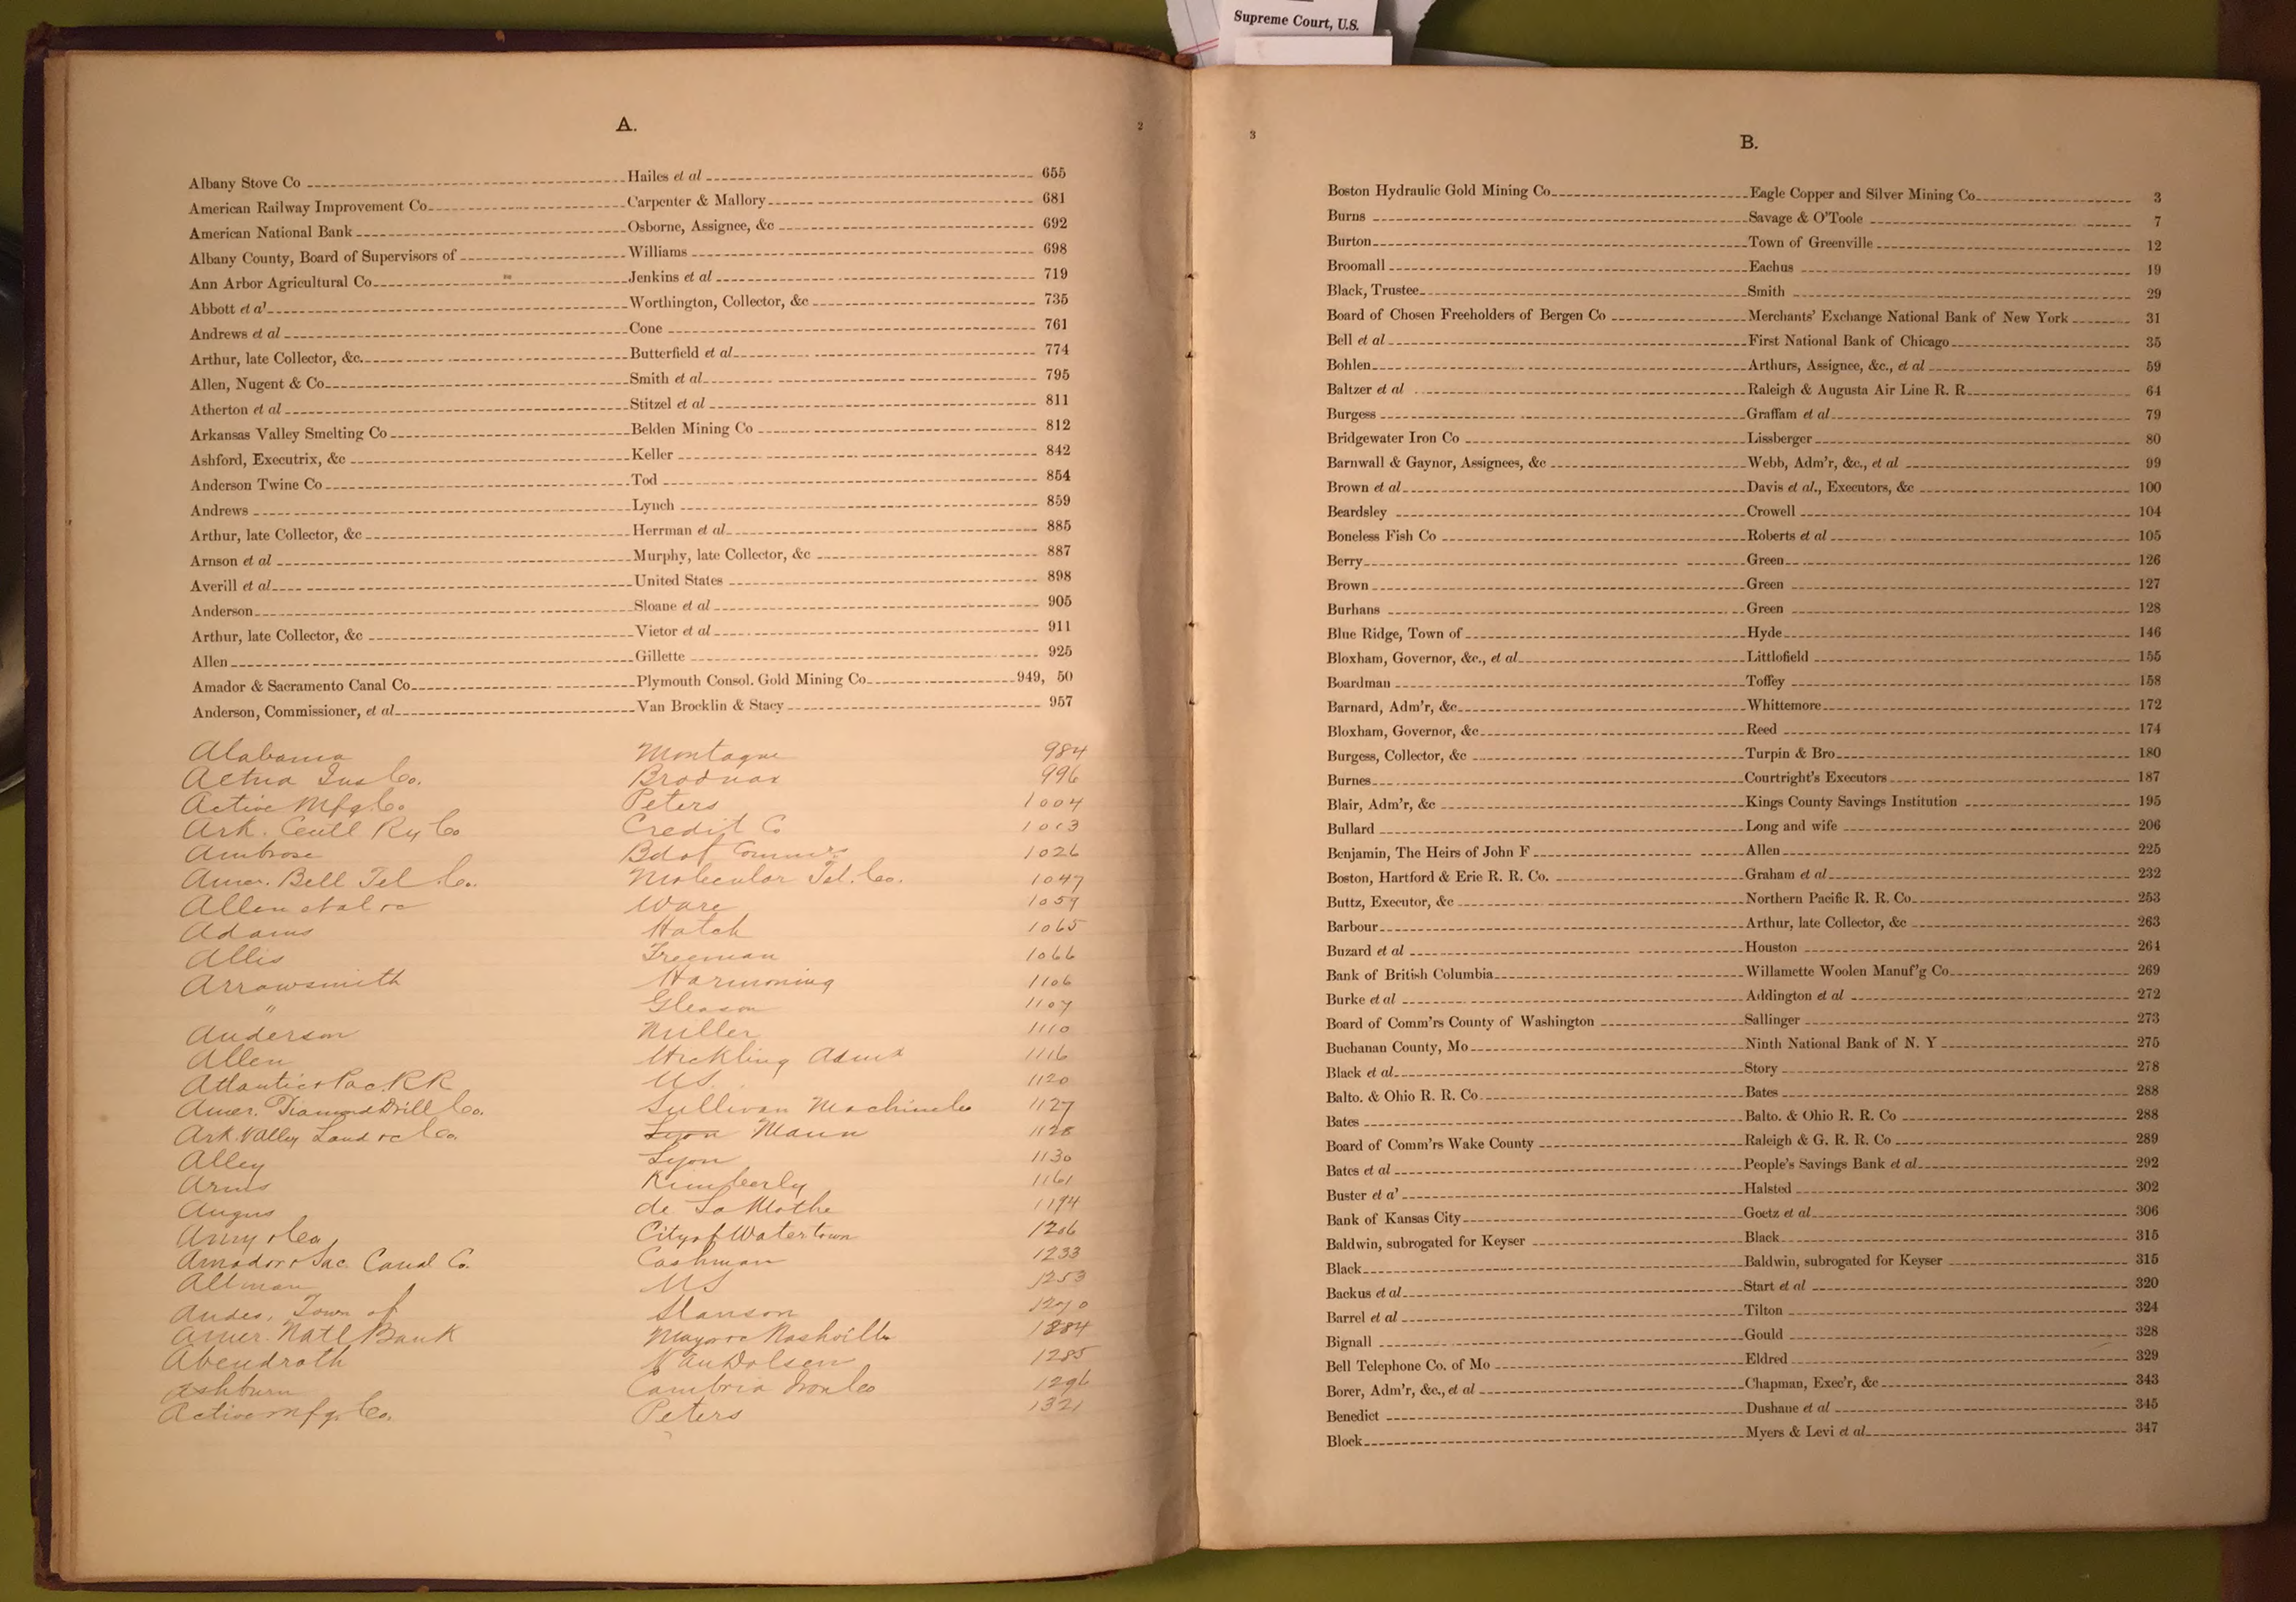 Supreme Court, U.S.
A.
2
Albany Stove Co Hailes et al 655
American Railway Improvement Co. Carpenter & Mallory 681
American National Bank Osborne, Assignee, &c 692
Albany County, Board of Supervisors of Williams 698
Ann Arbor Agricultural Co. Jenkins et al 719
Abbott et a' Worthington, Collector, &c 735
Andrews et al Cone 761
Arthur, late Collector, &c. Butterfield et al 774
Allen, Nugent & Co. Smith et al 795
Atherton et al Stitzel et al 811
Arkansas Valley Smelting Co Belden Mining Co 812
Ashford, Executrix, &c Keller 842
Anderson Twine Co Tod 854
Andrews Lynch 859
Arthur, late Collector, &c Herrman et al 885
Arnson et al Murphy, late Collector, &c 887
Averill et al United States 898
Anderson Sloane et al 905
Arthur, late Collector, &c Victor et al 911
Allen Gillette 925
Amador & Sacramento Canal Co. Plymouth Consol. Gold Mining Co. 949, 50
Anderson, Commissioner, et al Van Brocklin & Stacy 957
Alabama Montague 984
Aetna Ins Co. Brodnax 996
Active Mfg. Co Peters 1004
Ark. Centl Ry Co Credit Co 1013
Ambrose Bd of Commrs 1026
Amer. Bell Tel. Co. Molecular Tel. Co. 1047
Allen et al Ware 1059
Adams Hatch 1065
Allis Freeman 1066
Arrowsmith Harmoning 1106
" Gleason 1107
Anderson Miller 1110
Allen Hickling Admx 1116
Atlantic & Pac. RR US. 1120
Amer. Diamond Drill Co. Sullivan Machine Co 1127
Ark. Valley Land &c Co. Lyon Mann 1128
Alley Lyon 1130
Arms Kimberly 1161
Angus de La Mothe 1194
Amy & Co City of Watertown 1206
Amador & Sac. Canal Co. Cashman 1233
Altman US 1253
Andes, Town of Slauson 1270
Amer. Natl Bank Mayor &c Nashville 1284
Abendroth Van Dolsen 1285
Ashburn Cambria Iron Co 1296
Active Mfg. Co. Peters 1321
3
B.
Boston Hydraulic Gold Mining Co. Eagle Copper and Silver Mining Co. 3
Burns Savage & O'Toole 7
Burton Town of Greenville 12
Broomall Eachus 19
Black, Trustee Smith 29
Board of Chosen Freeholders of Bergen Co Merchants' Exchange National Bank of New York 31
Bell et al First National Bank of Chicago 35
Bohlen Arthurs, Assignee, &c., et al 59
Baltzer et al Raleigh & Augusta Air Line R. R. 64
Burgess Graffam et al 79
Bridgewater Iron Co Lissberger 80
Barnwall & Gaynor, Assignees, &c Webb, Adm'r, &c., et al 99
Brown et al Davis et al., Executors, &c 100
Beardsley Crowell 104
Boneless Fish Co Roberts et al 105
Berry Green 126
Brown Green 127
Burhans Green 128
Blue Ridge, Town of Hyde 146
Bloxham, Governor, &c., et al Littlofield 155
Boardman Toffey 158
Barnard, Adm'r, &c. Whittemore 172
Bloxham, Governor, &c. Reed 174
Burgess, Collector, &c Turpin & Bro. 180
Burnes Courtright's Executors 187
Blair, Adm'r, &c Kings County Savings Institution 195
Bullard Long and wife 206
Benjamin, The Heirs of John F Allen 225
Boston, Hartford & Erie R. R. Co. Graham et al 232
Buttz, Executor, &c Northern Pacific R. R. Co. 253
Barbour Arthur, late Collector, &c 263
Buzard et al Houston 264
Bank of British Columbia Willamette Woolen Manuf'g Co. 269
Burke et al Addington et al 272
Board of Comm'rs County of Washington Sallinger 273
Buchanan County, Mo Ninth National Bank of N. Y 275
Black et al Story 278
Balto. & Ohio R. R. Co Bates 288
Bates Balto. & Ohio R. R. Co 288
Board of Comm'rs Wake County Raleigh & G. R. R. Co 289
Bates et al People's Savings Bank et al 292
Buster et a' Halsted 302
Bank of Kansas City Goetz et al 306
Baldwin, subrogated for Keyser Black 315
Black Baldwin, subrogated for Keyser 315
Backus et al Start et al 320
Barrel et al Tilton 324
Bignall Gould 328
Bell Telephone Co. of Mo Eldred 329
Borer, Adm'r, &c., et al Chapman, Exec'r, &c 343
Benedict Dushane et al 345
Block Myers & Levi et al 347